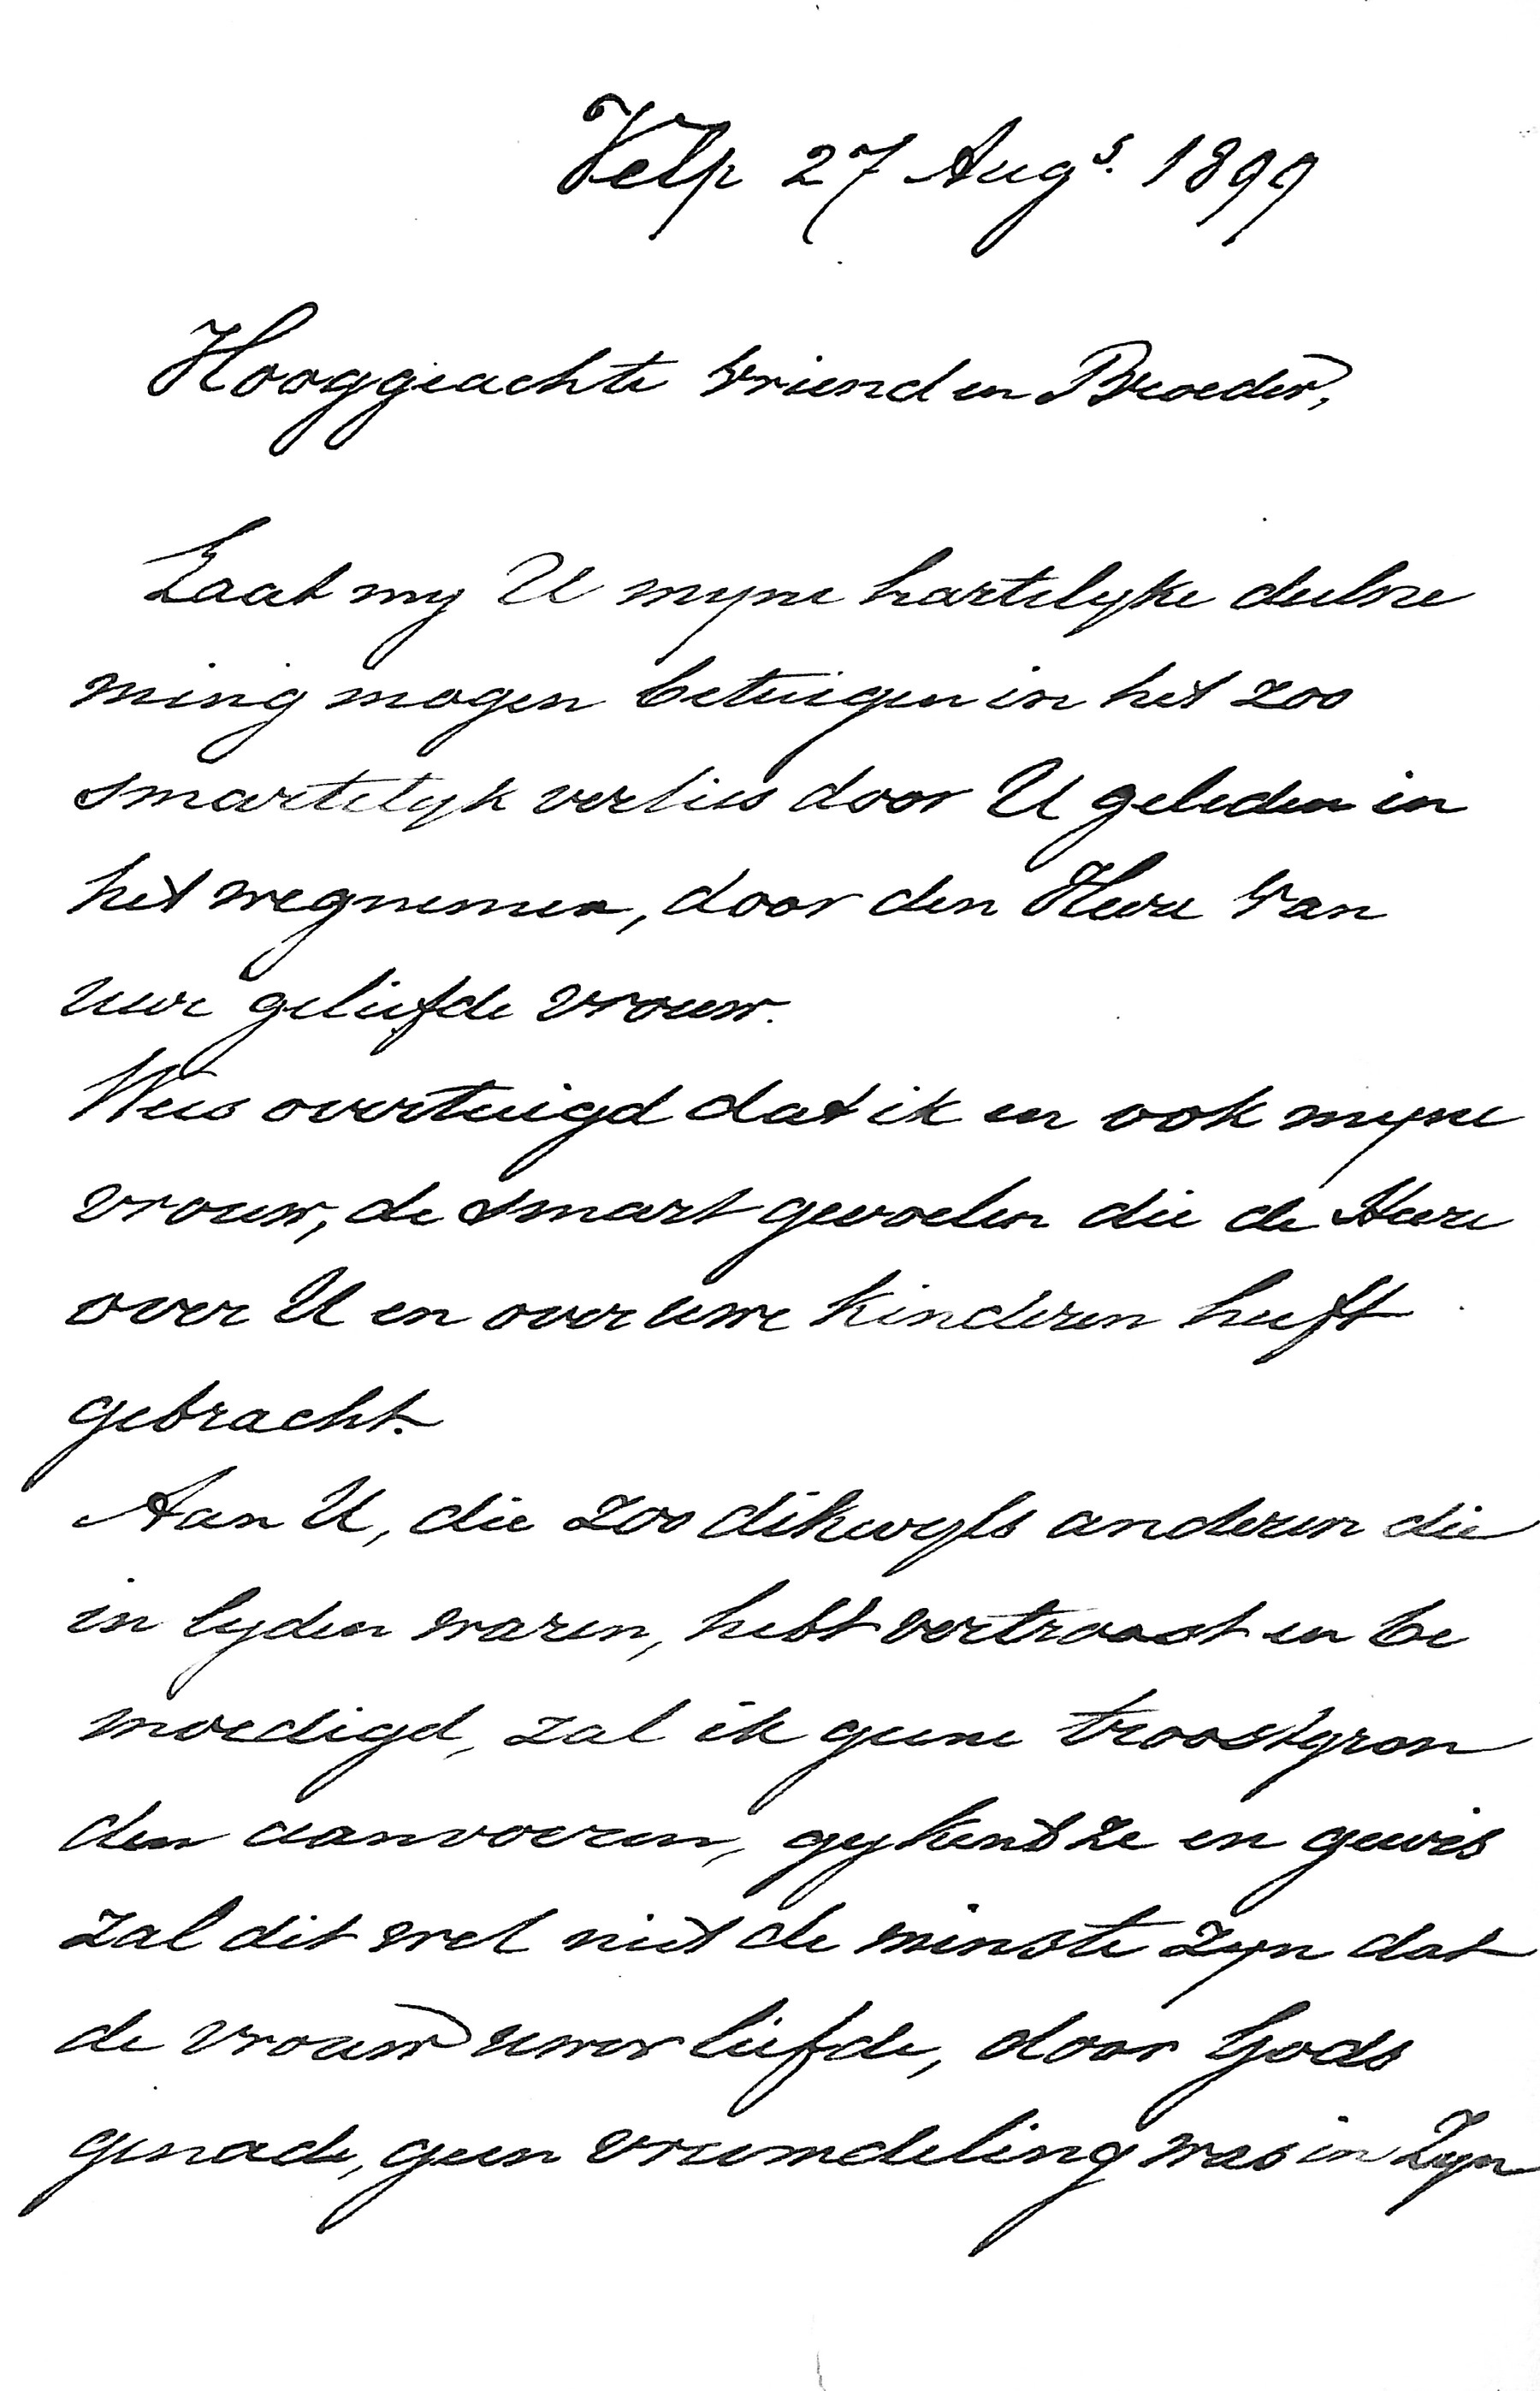 Velp 27 Augs. 1899
Hooggeachte Vriend en Broeder,
Laat my U myne hartelyke deelne
ming mogen betuigen in het zoo
smartelyk verlies door U geleden in
het wegnemen, door den Heere van
uwe geliefde vrouw.
Wees overtuigd dat ik en ook myne
vrouw, de smart gevoelen die de Heere
over U en over uwe kinderen heeft
gebracht.
Aan U, die zoo dikwyls anderen die
in lyden waren, hebt vertroost en be
moedigd, zal ik geene troostgron
den aanvoeren, gy kent ze en gewis
zal dit wel niet de minste zyn dat
de vrouw uwer liefde, door Gods
genade, geen vreemdeling was in Zyn